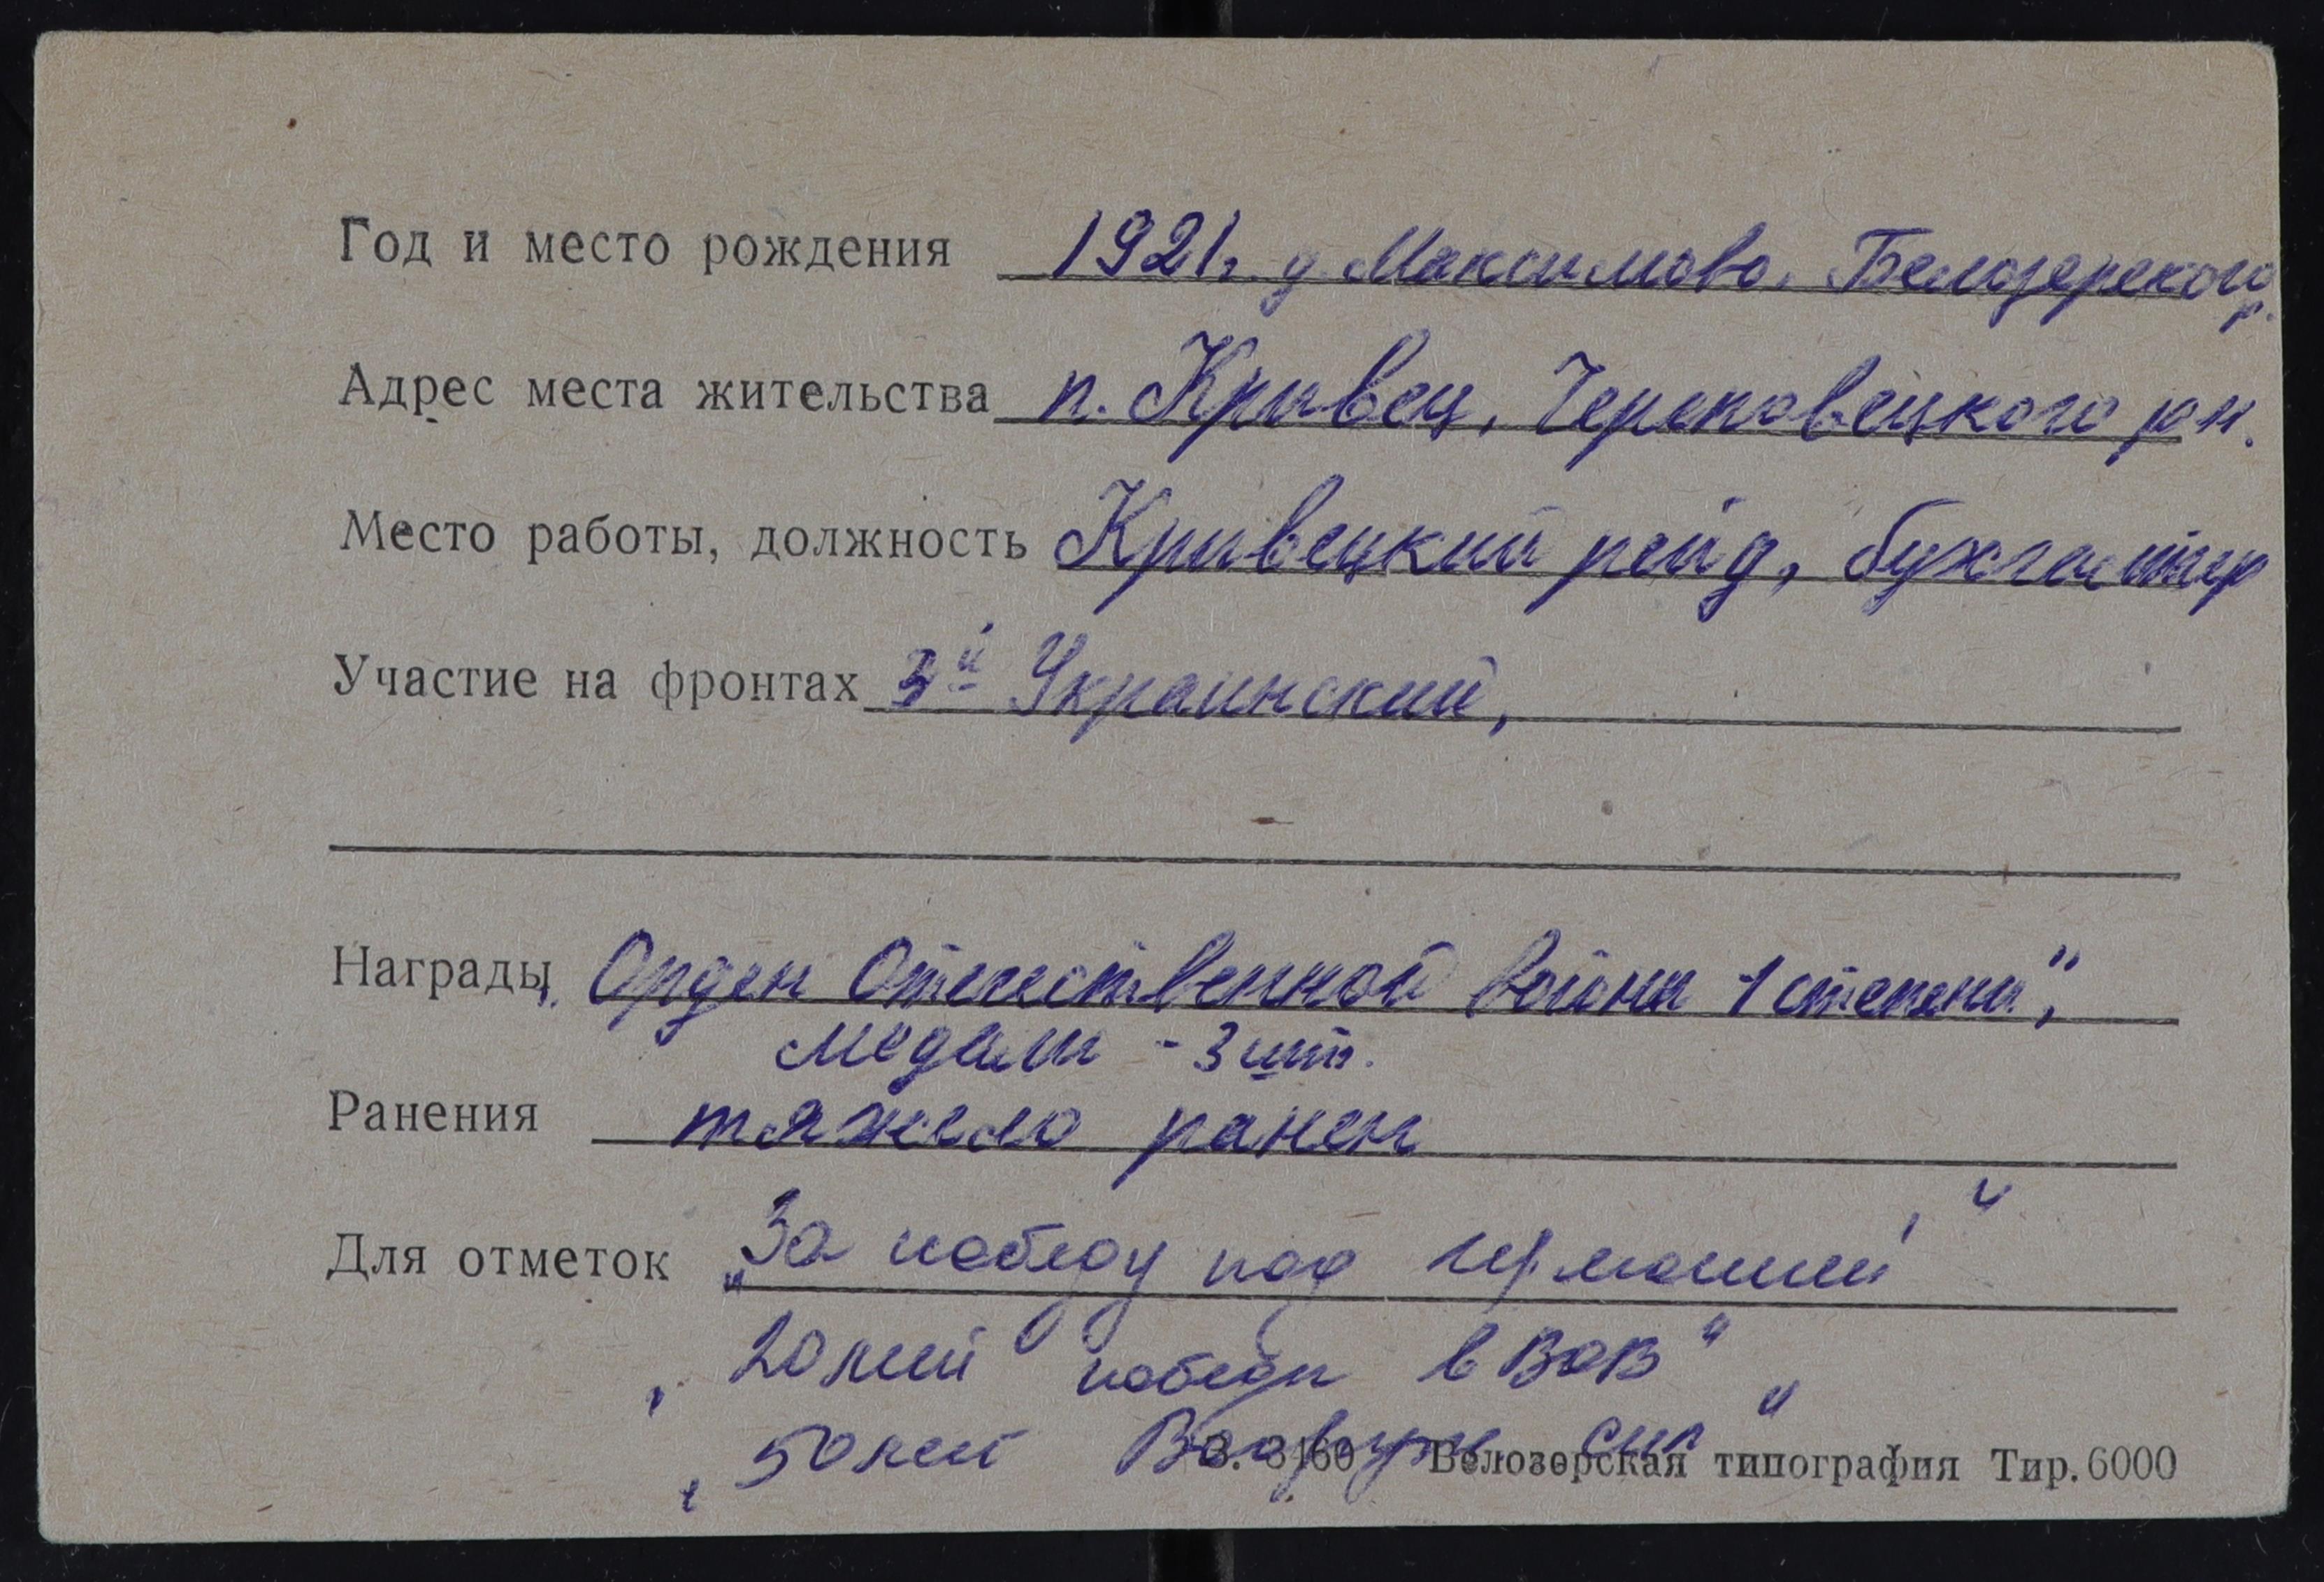 Год и место рождения 1921г. д. Максимово, Белозерского
р.
Адрес места жительства п. Кривец, Череповецкого р-н.
Место работы, должность Кривецкий рейд, бухгалтер
Участие на фронтах 3й Украинский,
Награды „Орден Отечественной войны 1 степени",
медали - 3 шт.
Ранения тяжело ранен
Для отметок „За победу над Германией"
„20 лет победы в ВОВ"
„50 лет Вооруж. сил"
З. 3160 Белозерская типография Тир. 6000